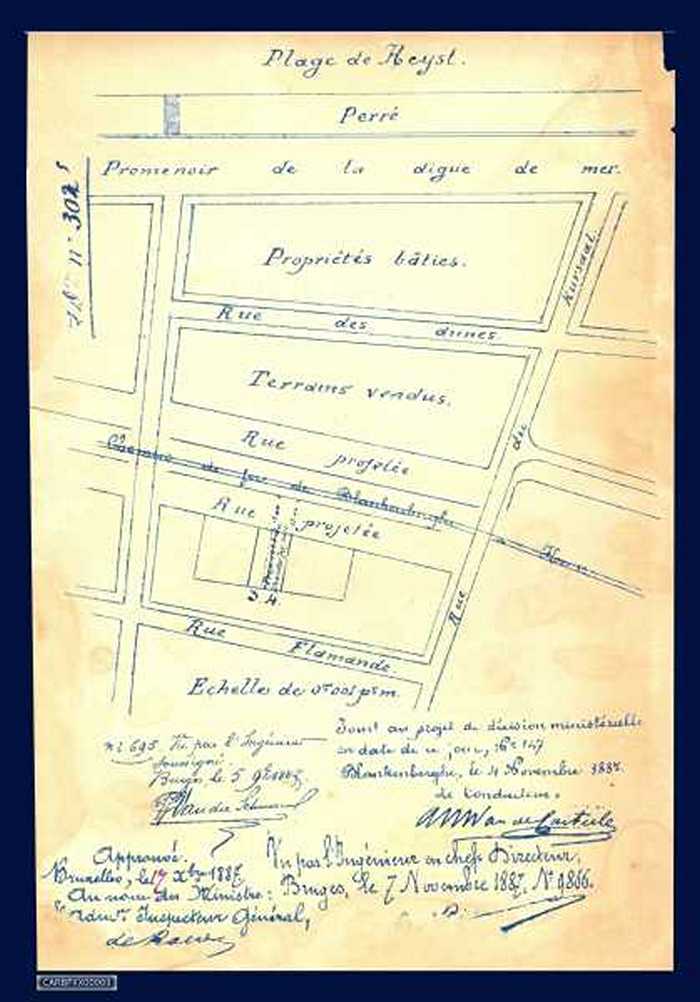 Plage de Heyst.
Perré
Promenoir de la digue de mer.
n° 302
Propriétés bâties.
Kursaal.
Rue des dunes
Terrains vendus.
du
Rue projetée
Chemin de fer de Blankenberghe à Heyst
Rue projetée
3. 4.
Rue
Rue Flamande.
Echelle de 0m001 p. m.
N° 695 Vu par l'Ingénieur
soussigné.
Bruges, le 5 9bre 1887.
Joint au projet de division ministérielle
en date de ce jour, N° 147
Blankenberghe, le 4 Novembre 1887.
Le Conducteur.
Approuvé.
Bruxelles, le 17 Xbre 1887.
Au nom du Ministre:
Inspecteur Général,
Vu par l'Ingénieur en chef Directeur,
Bruges, le 7 Novembre 1887, N° 9866.
CARBFYX00003